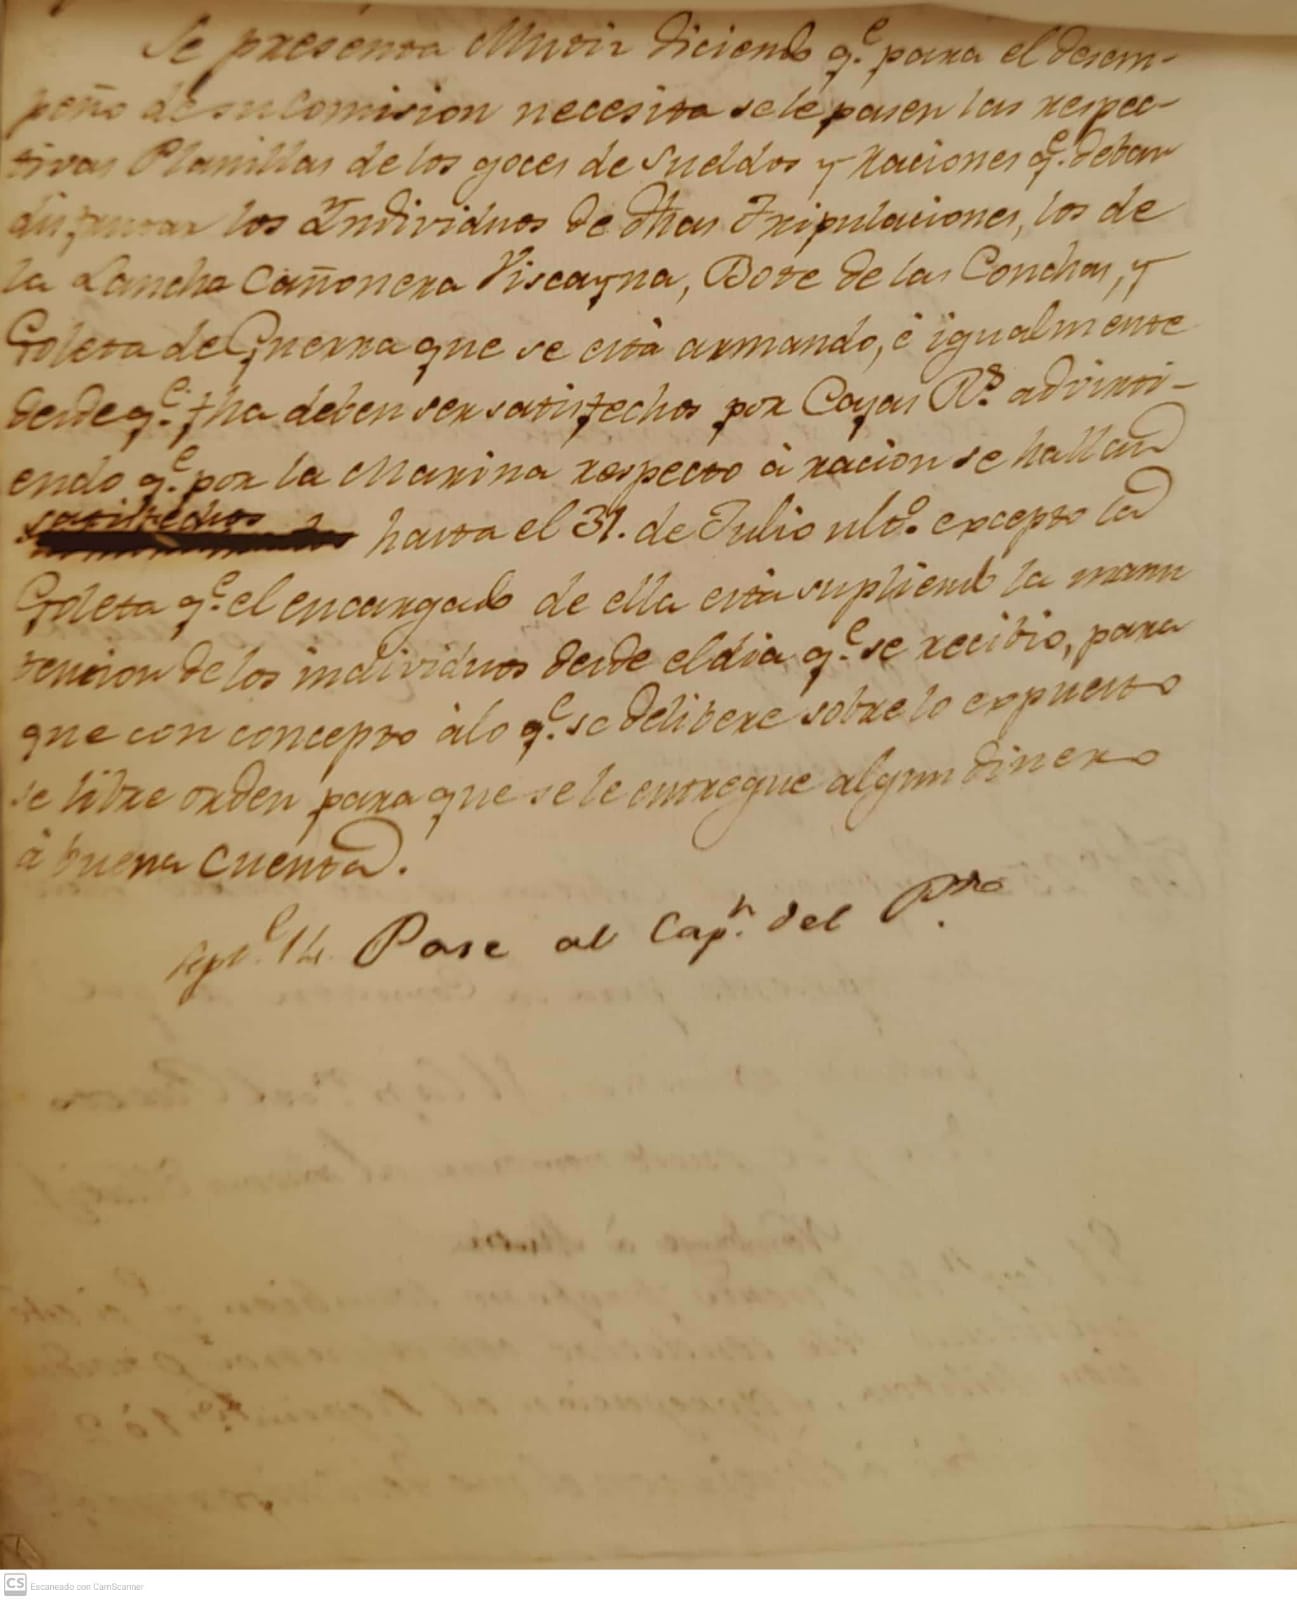 Se presenta Mutis diciendo q.e para el desem-
peño de su Comision necesita se le pasen las respec-
tivas Planillas de los goces de sueldos y raciones q.e deban
disfrutar los Individuos de dhas Tripulaciones, los de
la Lancha Cañonera Viscayna, Bote de las Conchas, y
Goleta de Guerra que se está armando, é igualmente
desde q.e fha deben ser satisfechos por Cajas R.s advirti-
endo q.e por la Marina respecto à racion se hallan
satisfechos hasta el 31. de Julio ult.o excepto la
Goleta q.e el encargado de ella está supliendo la manu
tencion de los individuos desde el dia q.e se recibio, para
que con concepto à lo q.e se delibere sobre lo expuesto
se libre orden para que se le entregue algun dinero
à buena cuenta.
Sept.e 14. Pase al Cap.n del P.to
Escaneado con CamScanner